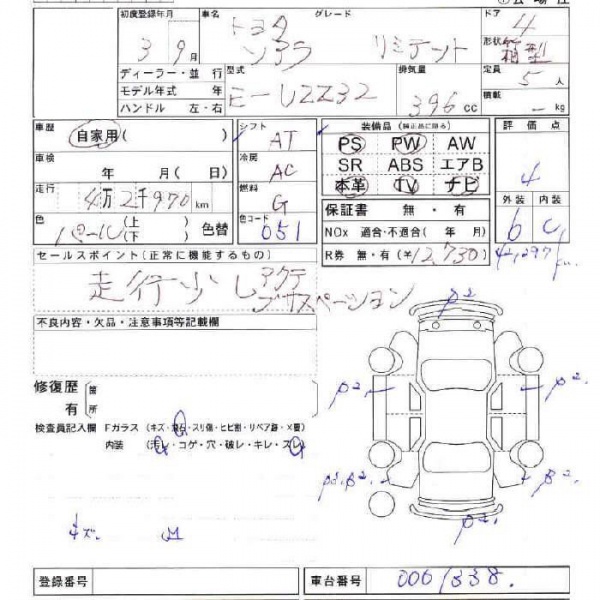 初度登録年月 車名 グレード ドア 4
3 9月 トヨタ ソアラ リミテット 形状 箱型
ディーラー・並行 型式 排気量 定員 5人
モデル年式 年 E-UZZ32 396cc 積載 - kg
ハンドル 左・右
車歴 自家用( ) シフト AT 装備品(純正品に限る) 評価点
PS PW AW
車検 年 月(日) 冷房 AC SR ABS エアB 4
本革 TV ナビ
走行 4万2千970km 燃料 G 保証書 無・有 外装 内装
色 パール(上下) 色替 色コード 051 NOx 適合・不適合( 年 月) 6 C
R券 無・有(¥12,730) 42,297km
セールスポイント(正常に機能するもの)
走行少し アクティブサスペーション
不良内容・欠品・注意事項等記載欄
修復歴 箇
有 所
検査員記入欄 Fガラス (キズ・飛石・スリ傷・ヒビ割・リペア跡・X要)
内装 (汚レ・コゲ・穴・破レ・キレ・スレ)
P2
P2. P2.
P2.B2. B2.
P2.
キズ. M
登録番号 車台番号 0061338.